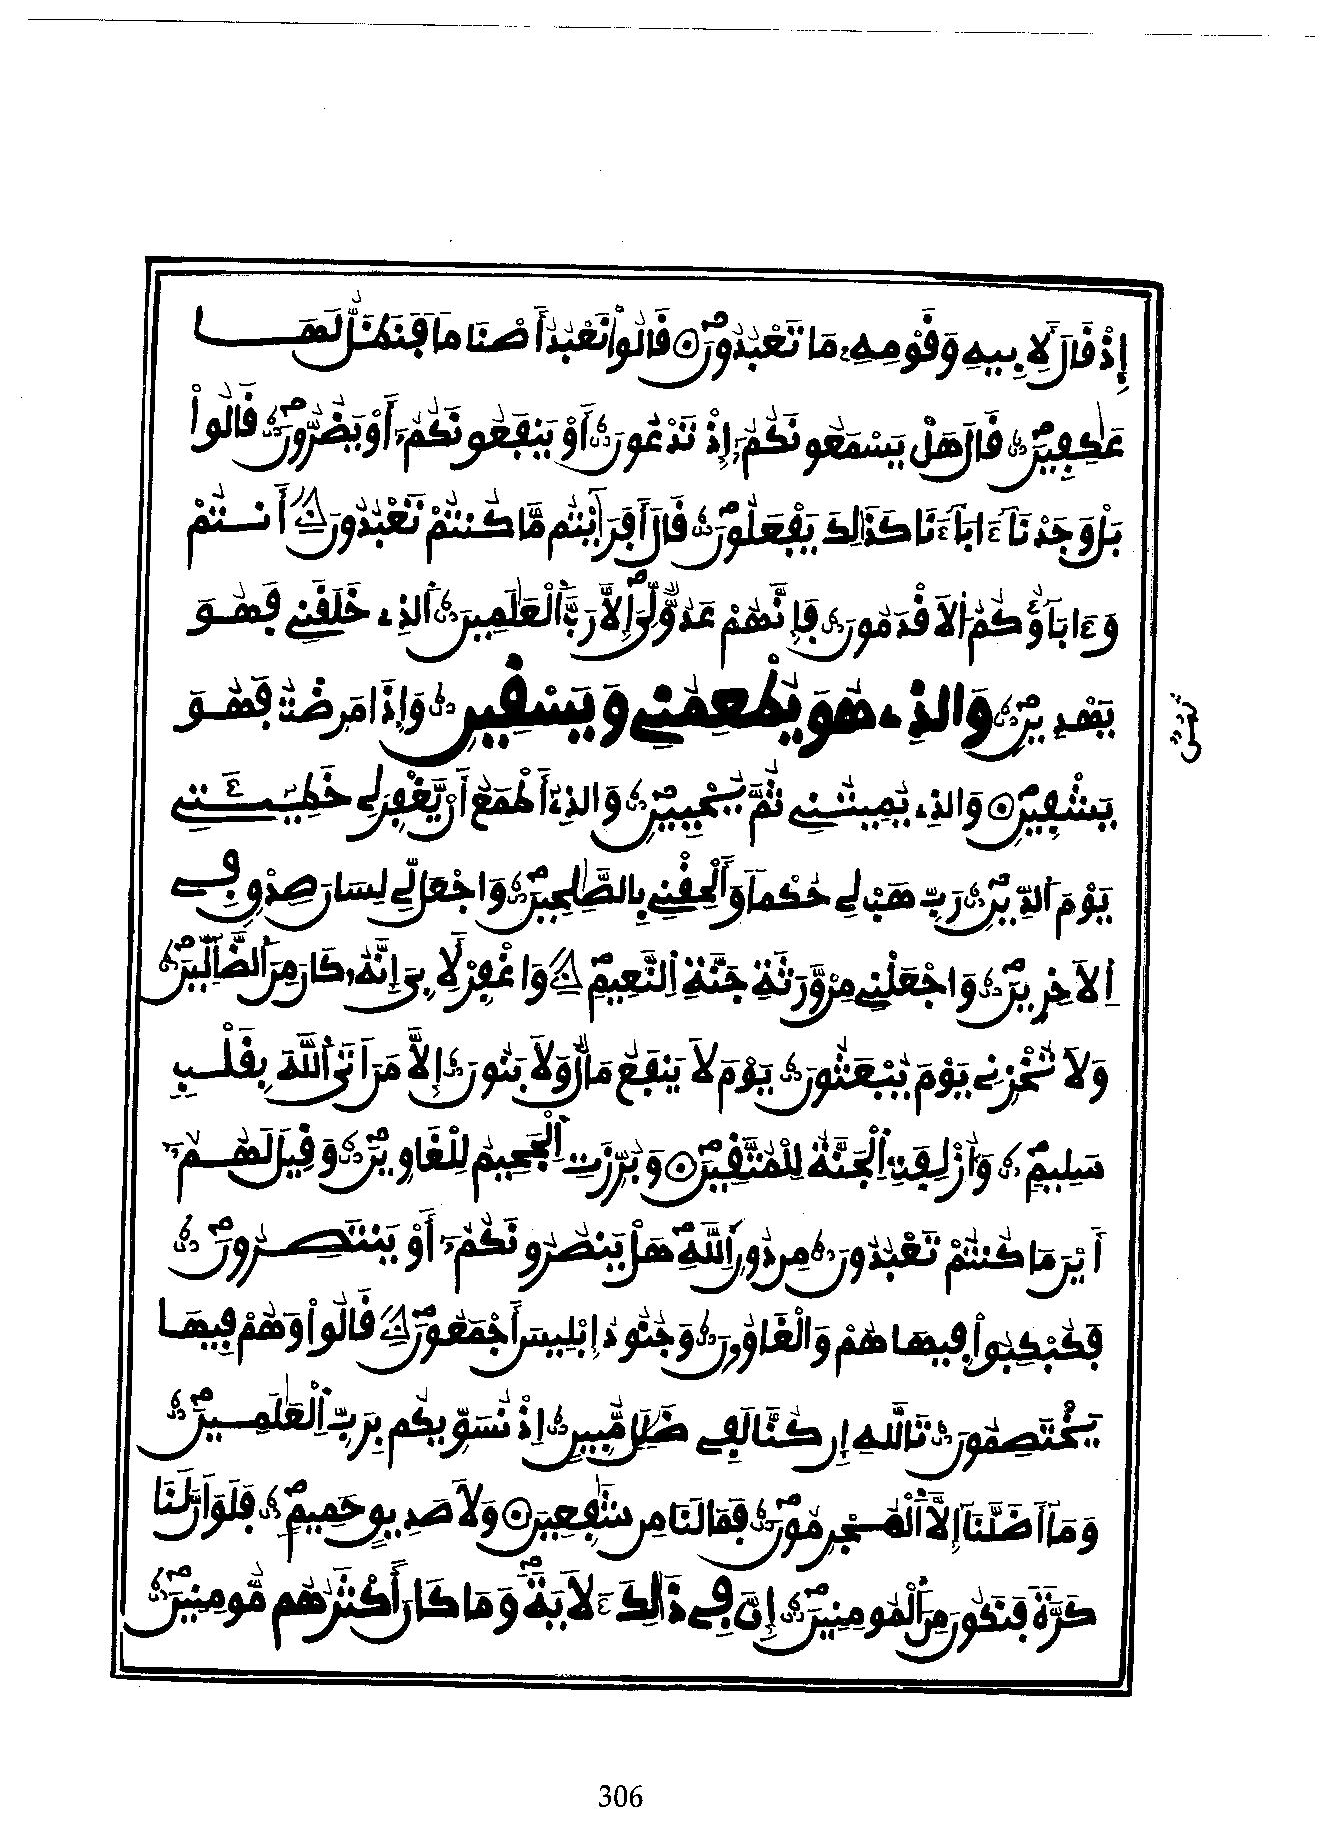 إِذْ قَالَ لِأَبِيهِ وَقَوْمِهِۦ مَا تَعْبُدُونَ قَالُواْ نَعْبُدُ أَصْنَامًا فَنَظَلُّ لَهَا
عَٰكِفِينَ قَالَ هَلْ يَسْمَعُونَكُمُۥٓ إِذْ تَدْعُونَ أَوْ يَنفَعُونَكُمُۥٓ أَوْ يَضُرُّونَ قَالُواْ
بَلْ وَجَدْنَآ ءَابَآءَنَا كَذَٰلِكَ يَفْعَلُونَ قَالَ أَفَرَٰٓيْتُم مَّا كُنتُمْ تَعْبُدُونَ أَنتُمْ
وَءَابَآؤُكُمُ اُلَاقْدَمُونَ فَإِنَّهُمْ عَدُوٌّ لِّيَ إِلَّا رَبَّ اَلْعَٰلَمِينَ اَلذِے خَلَقَنِے فَهُوَ
يَهْدِينِ وَالذِے هُوَ يُطْعِمُنِے وَيَسْقِينِ وَإِذَا مَرِضْتُ فَهُوَ
يَشْفِينِ وَالذِے يُمِيتُنِے ثُمَّ يُحْيِينِ وَالذِےٓ أَطْمَعُ أَنْ يَّغْفِرَ لِے خَطِيٓـَٔتِے
يَوْمَ اَلدِّينِ رَبِّ هَبْ لِے حُكْمًا وَأَلْحِقْنِے بِالصَّٰلِحِينَ وَاجْعَل لِّے لِسَانَ صِدْقٍ فِے
اِلَاخِرِينَ وَاجْعَلْنِے مِنْ وَّرَثَةِ جَنَّةِ اِلنَّعِيمِ وَاغْفِرْ لِأَبِيَ إِنَّهُۥ كَانَ مِنَ اَلضَّآلِّينَ
وَلَا تُخْزِنِے يَوْمَ يُبْعَثُونَ يَوْمَ لَا يَنفَعُ مَالٌ وَلَا بَنُونَ إِلَّا مَنْ أَتَى اَللَّهَ بِقَلْبٍ
سَلِيمٍ وَأُزْلِفَتِ اِلْجَنَّةُ لِلْمُتَّقِينَ وَبُرِّزَتِ اِلْجَحِيمُ لِلْغَاوِينَ وَقِيلَ لَهُمُۥٓ
أَيْنَ مَا كُنتُمْ تَعْبُدُونَ مِن دُونِ اِللَّهِ هَلْ يَنصُرُونَكُمُۥٓ أَوْ يَنتَصِرُونَ
فَكُبْكِبُواْ فِيهَا هُمْ وَالْغَاوُۥنَ وَجُنُودُ إِبْلِيسَ أَجْمَعُونَ قَالُواْ وَهُمْ فِيهَا
يَخْتَصِمُونَ تَاللَّهِ إِن كُنَّا لَفِے ضَلَٰلٍ مُّبِينٍ إِذْ نُسَوِّيكُم بِرَبِّ اِلْعَٰلَمِينَ
وَمَآ أَضَلَّنَآ إِلَّا اَلْمُجْرِمُونَ فَمَا لَنَا مِن شَٰفِعِينَ وَلَا صَدِيقٍ حَمِيمٍ فَلَوَ اَنَّ لَنَا
كَرَّةً فَنَكُونَ مِنَ اَلْمُومِنِينَ إِنَّ فِے ذَٰلِكَ ءَلَايَةً وَمَا كَانَ أَكْثَرُهُم مُّومِنِينَ
306